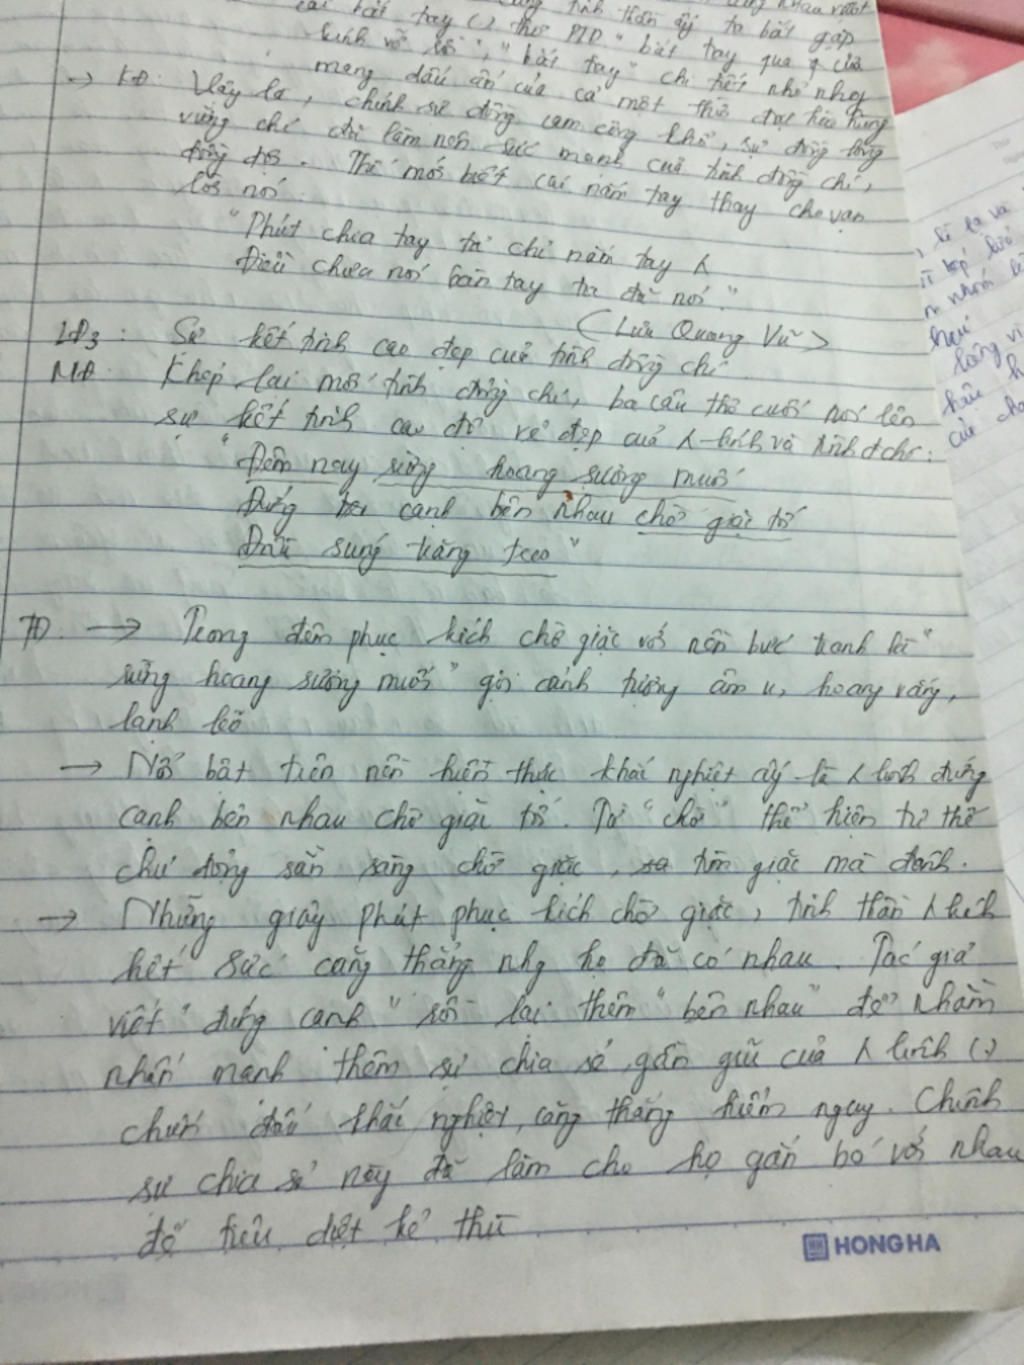 cái bắt tay () thơ PTD "bắt tay qua cửa
kính vỡ rồi", "bắt tay" chi tiết nhỏ nhưng
mang dấu ấn của cả một thời đại hào hùng
→ KĐ: Vậy là, chính sự đồng cam cộng khổ, sự đồng lòng
vững chí đã làm nên sức mạnh của tình đồng chí,
đồng đội. Thế mới biết cái nắm tay thay cho vạn
lời nói.
"Phút chia tay ta chỉ nắm tay
Điều chưa nói bàn tay ta đã nói"
(Lưu Quang Vũ)
LĐ3: Sự kết tinh cao đẹp của tình đồng chí
MĐ. Khép lại mối tình đồng chí, ba câu thơ cuối nói lên
sự kết tinh cao độ vẻ đẹp của lính và tình đchí:
"Đêm nay rừng hoang sương muối
Đứng cạnh bên nhau chờ giặc tới
Đầu súng trăng treo"
TĐ. → Trong đêm phục kích chờ giặc với nền bức tranh là "
rừng hoang sương muối" gợi cảnh tượng âm u, hoang vắng,
lạnh lẽo
→ Nổi bật trên nền hiện thực khắc nghiệt ấy là lính đứng
cạnh bên nhau chờ giặc tới. Từ "chờ" thể hiện tư thế
chủ động sẵn sàng chờ giặc, tìm giặc mà đánh.
→ Những giây phút phục kích chờ giặc, tinh thần lính
hết sức căng thẳng nhg họ đã có nhau. Tác giả
viết "đứng cạnh" rồi lại thêm "bên nhau" để nhằm
nhấn mạnh thêm sự chia sẻ, gần gũi của lính ()
chiến đấu khắc nghiệt, căng thẳng hiểm nguy. Chính
sự chia sẻ này đã làm cho họ gắn bó với nhau
để tiêu diệt kẻ thù
HONG HA